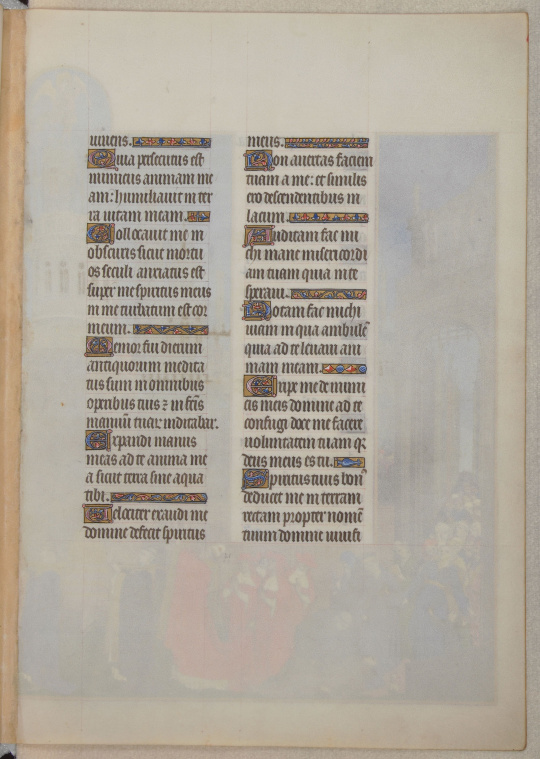 uivens.
Quia persecutus est
inimicus animam me
am: humiliavit in ter
ra vitam meam.
Collocavit me in
obscuris sicut mortu
os seculi anxiatus est
super me spiritus meus
in me turbatum est cor
meum.
Memor fui dierum
antiquorum medita
tus sum in omnibus
operibus tuis ⁊ in fc̃is
manuũ tuar meditabar.
Expandi manus
meas ad te anima me
a sicut terra sine aqua
tibi.
Velociter exaudi me
domine defecit spiritus
meus.
Non avertas faciem
tuam a me: et similis
ero descendentibus in
lacum.
Auditam fac mi
chi mane misericordi
am tuam quia in te
speravi.
Notam fac michi
viam in qua ambulẽ
quia ad te levavi ani
mam meam.
Eripe me de inimi
cis meis domine ad te
confugi doce me facere
voluntatem tuam qr
deus meus es tu.
Spiritus tuus bon
deducet me in terram
rectam propter nomẽ
tuum domine vivifi